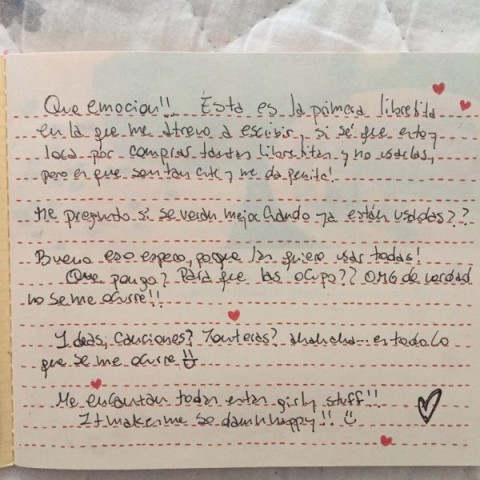 Que emocion!! Esta es la primera libretita
en la que me atrevo a escribir, si sé que estoy
loca por comprar tantas libretitas y no usarlas,
pero es que son tan cute y me da penita!
Me pregunto si se verán mejor cuando ya están usadas??
Bueno eso espero, porque las quiero usar todas!
Que pongo? Para que las ocupo?? OMG de verdad
no se me ocurre!!
Ideas, canciones? Tonteras? ahahaha... es todo lo
que se me ocurre
Me encantan todas estas girly stuff!!
It makes me so damn happy!!